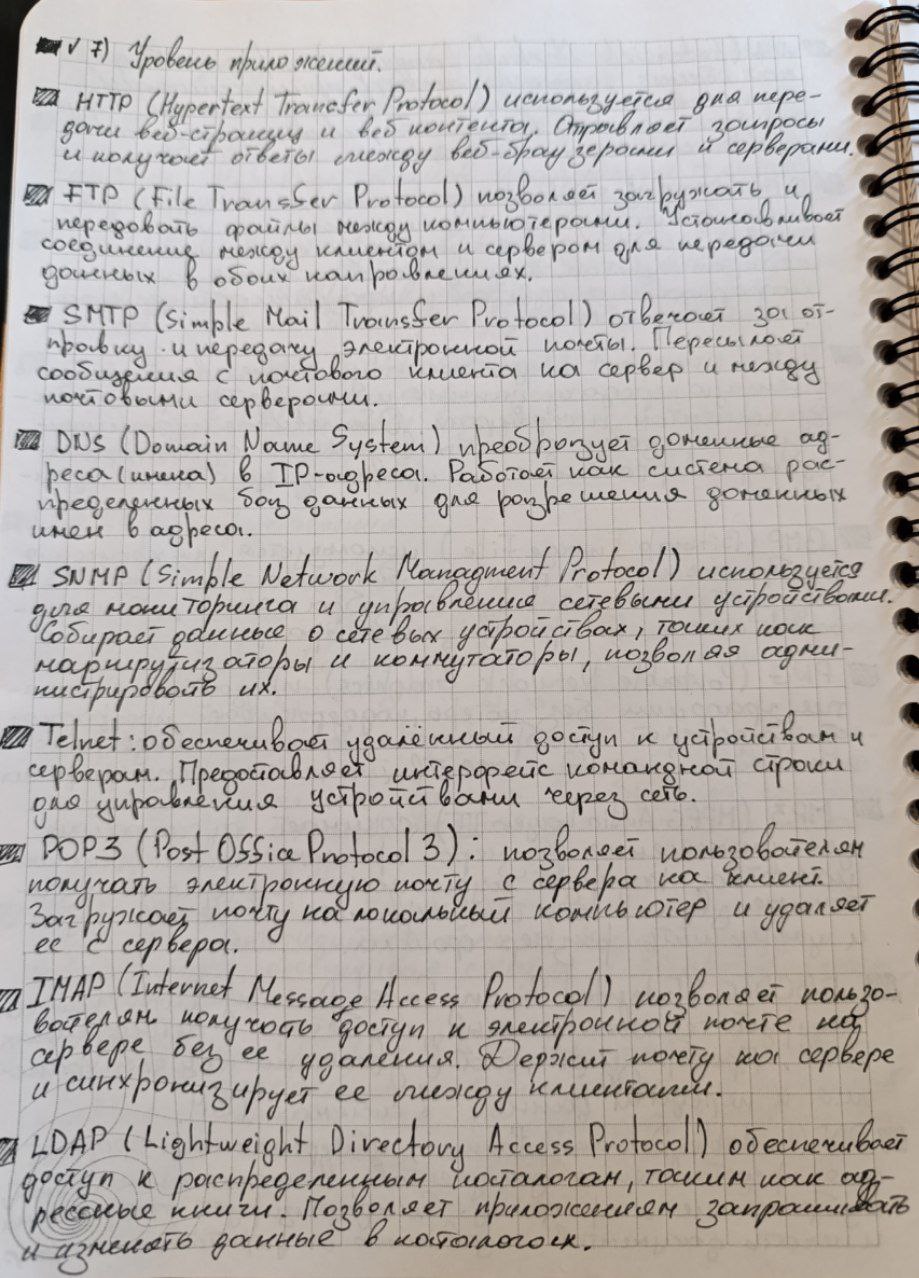 ✓ 7) Уровень приложений.
HTTP (Hypertext Transfer Protocol) используется для пере-
дачи веб-страниц и веб контента. Отправляет запросы
и получает ответы между веб-браузерами и серверами.
FTP (File Transfer Protocol) позволяет загружать и
передовать файлы между компьютерами. Устанавливает
соединение между клиентом и сервером для передачи
данных в обоих направлениях.
SMTP (Simple Mail Transfer Protocol) отвечает за от-
правку и передачу электронной почты. Пересылает
сообщения с почтового клиента на сервер и между
почтовыми серверами.
DNS (Domain Name System) преобразует доменные ад-
реса (имена) в IP-адреса. Работает как система рас-
пределенных баз данных для разрешения доменных
имен в адреса.
SNMP (Simple Network Managment Protocol) используется
для мониторинга и управление сетевыми устройствами.
Собирает данные о сетевых устройствах, таких как
маршрутизаторы и коммутаторы, позволяя адми-
нистрировать их.
Telnet: обеспечивает удалённый доступ к устройствам и
серверам. Предоставляет интерфейс командной строки
для управления устройствами через сеть.
POP3 (Post Office Protocol 3): позволяет пользователям
получать электронную почту с сервера на клиент.
Загружает почту на локальный компьютер и удаляет
ее с сервера.
IMAP (Internet Message Access Protocol) позволяет пользо-
вателям получать доступ к электронной почте на
сервере без ее удаления. Держит почту на сервере
и синхронизирует ее между клиентами.
LDAP (Lightweight Directory Access Protocol) обеспечивает
доступ к распределенным каталогам, таким как ад-
рессные книги. Позволяет приложениям запрашивать
и изменять данные в каталогах.